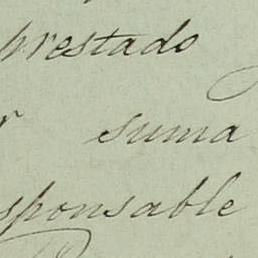 prestado
r suma
sponsable